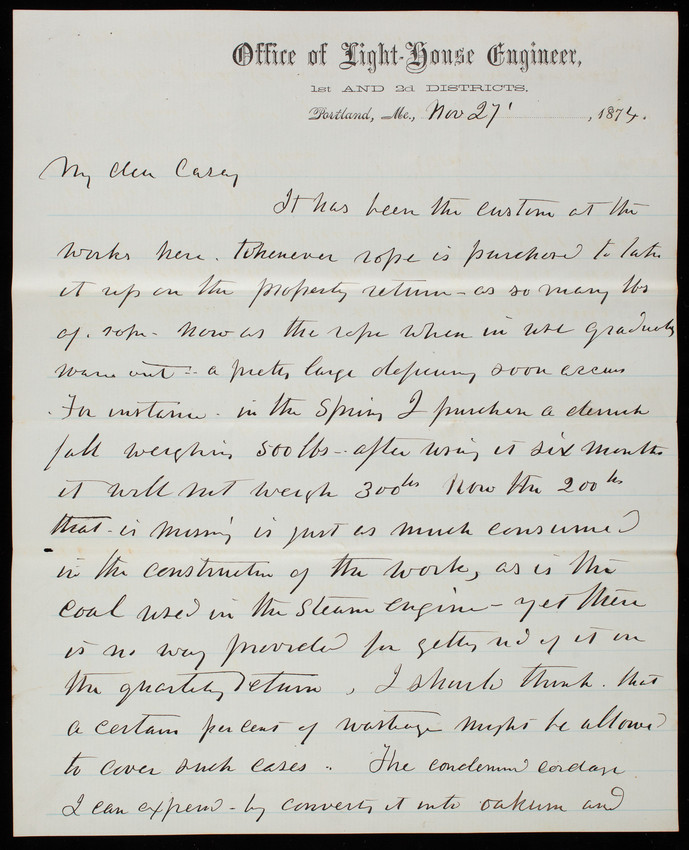 Office of Light-House Engineer,
1st AND 2d DISTRICTS,
Portland, Me., Nov 27, 1874.
My dear Casey
It has been the custom at the
works here. Whenever rope is purchased to take
it up on the property return - as so many lbs
of. rope - now as the rope when in use gradually
wears out - a pretty large deficiency soon occurs
For instance - in the Spring I purchase a derrick
fall weighing 500 lbs - after using it six months
it will not weigh 300 lbs Now the 200 lbs
that is missing is just as much consumed
in the construction of the work, as is the
coal used in the steam engine - yet there
is no way provided for getting rid of it on
the quarterly return, I should think that
a certain per cent of wastage might be allowed
to cover such cases. The condemned cordage
I can expend - by converting it into oakum and